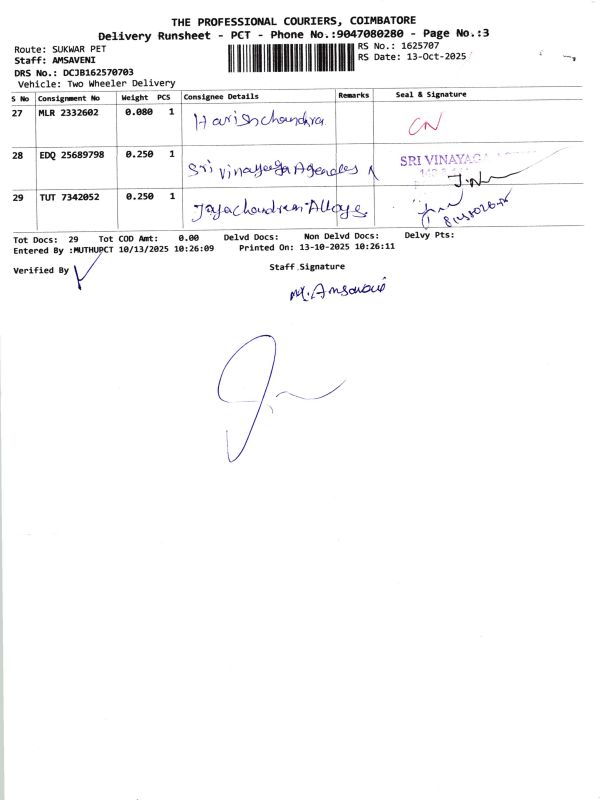 THE PROFESSIONAL COURIERS, COIMBATORE
Delivery Runsheet - PCT - Phone No.:9047080280 - Page No.:3
Route: SUKWAR PET
RS No.: 1625707
Staff: AMSAVENI
RS Date: 13-Oct-2025
DRS No.: DCJB162570703
Vehicle: Two Wheeler Delivery
S No Consignment No Weight PCS Consignee Details Remarks Seal & Signature
27 MLR 2332602 0.080 1 Harish chandra CN
28 EDQ 25689798 0.250 1 Sri Vinayaga Agencies SRI VINAYAGA
J.N
29 TUT 7342052 0.250 1 Jayachandran Alloys
Tot Docs: 29 Tot COD Amt: 0.00 Delvd Docs: Non Delvd Docs: Delvy Pts:
Entered By :MUTHUPCT 10/13/2025 10:26:09 Printed On: 13-10-2025 10:26:11
Verified By
Staff Signature
M. Amsaveni